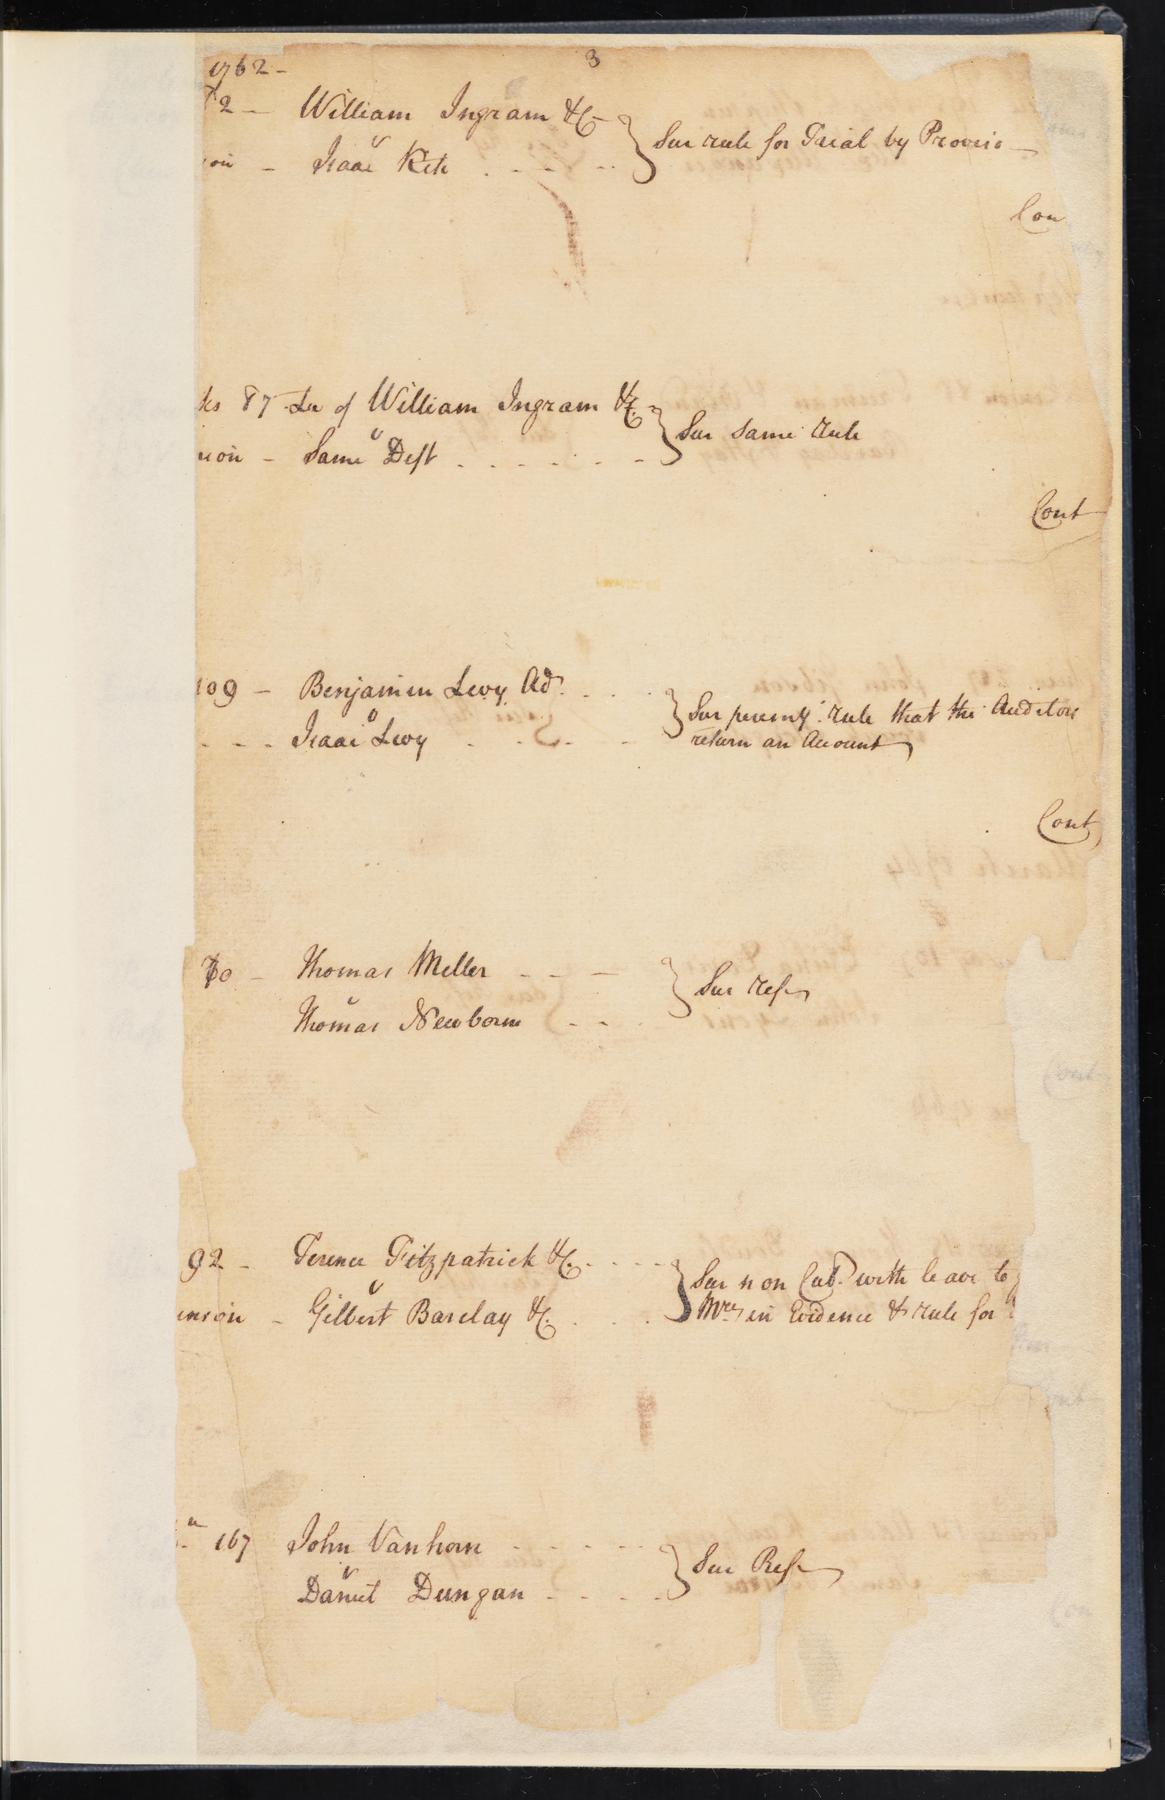 1762 -
3
72 - William Ingram &c
v
ion - Isaac Kete
Sur rule for Trial by Proviso
Con
ks 87 - Lee of William Ingram &c.
v
ison - Same Deft
Sur same rule
Cont
109 - Benjamin Levy Adr.
v
Isaac Levy
Sur peremy. rule that the Auditors
return an Account
Cont
70 - Thomas Meller
v
Thomas Newborn
Sur refs
92 - Terence Fitzpatrick &c.
v
inson - Gilbert Barclay &c.
Sur non Cul. with leave to
in Evidence & rule for
167 John Vanhorn
v
Daniel Dungan
Sur Refs